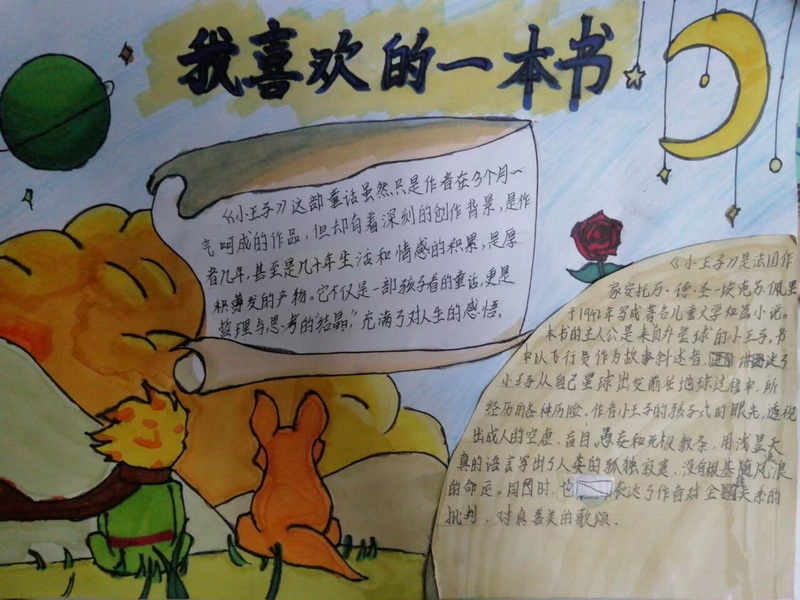 我喜欢的一本书
《小王子》这部童话虽然只是作者在3个月一
气呵成的作品，但却有着深刻的创作背景，是作
者几年，甚至是几十年生活和情感的积累，是厚
积薄发的产物。它不仅是一部孩子看的童话，更是
哲理与思考的"结晶，"充满了对人生的感悟。
《小王子》是法国作
家安托万·德·圣-埃克苏佩里
于1942年写成著名儿童文学短篇小说。
本书的主人公是来自外星球的小王子。书
中以飞行员作为故事叙述者，讲述了
小王子从自己星球出发前往地球过程中，所
经历的各种历险。作者小王子的孩子式的眼光，透视
出成人的空虚、盲目，愚妄和死板教条，用浅显天
真的语言写出了人类的孤独寂寞、没有根基随风流浪
的命运。同时，也表达了作者对金关系的
批判，对真善美的歌颂．